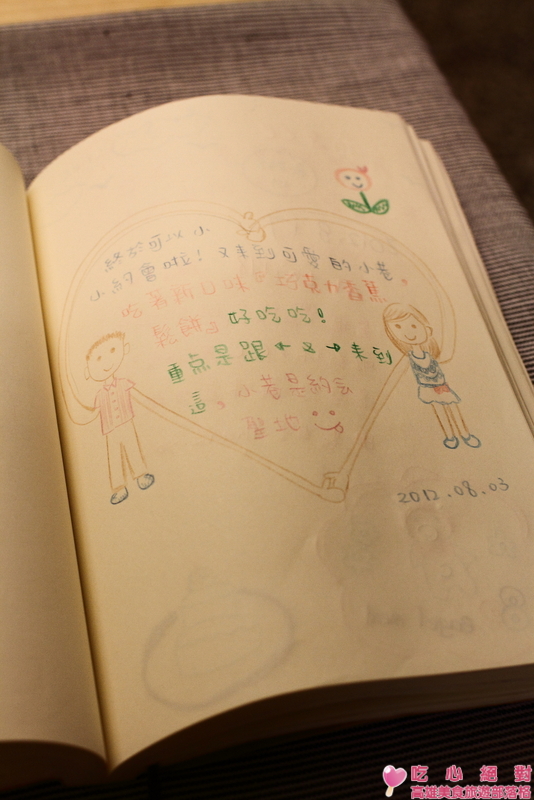 終於可以小
小約會啦！又來到可愛的小巷。
吃著新口味的巧克力香蕉
鬆餅，好吃吃！
重点是跟←&→來到
這。小巷是約会
聖地
2012.08.03
吃心絕對
高雄美食旅遊部落格